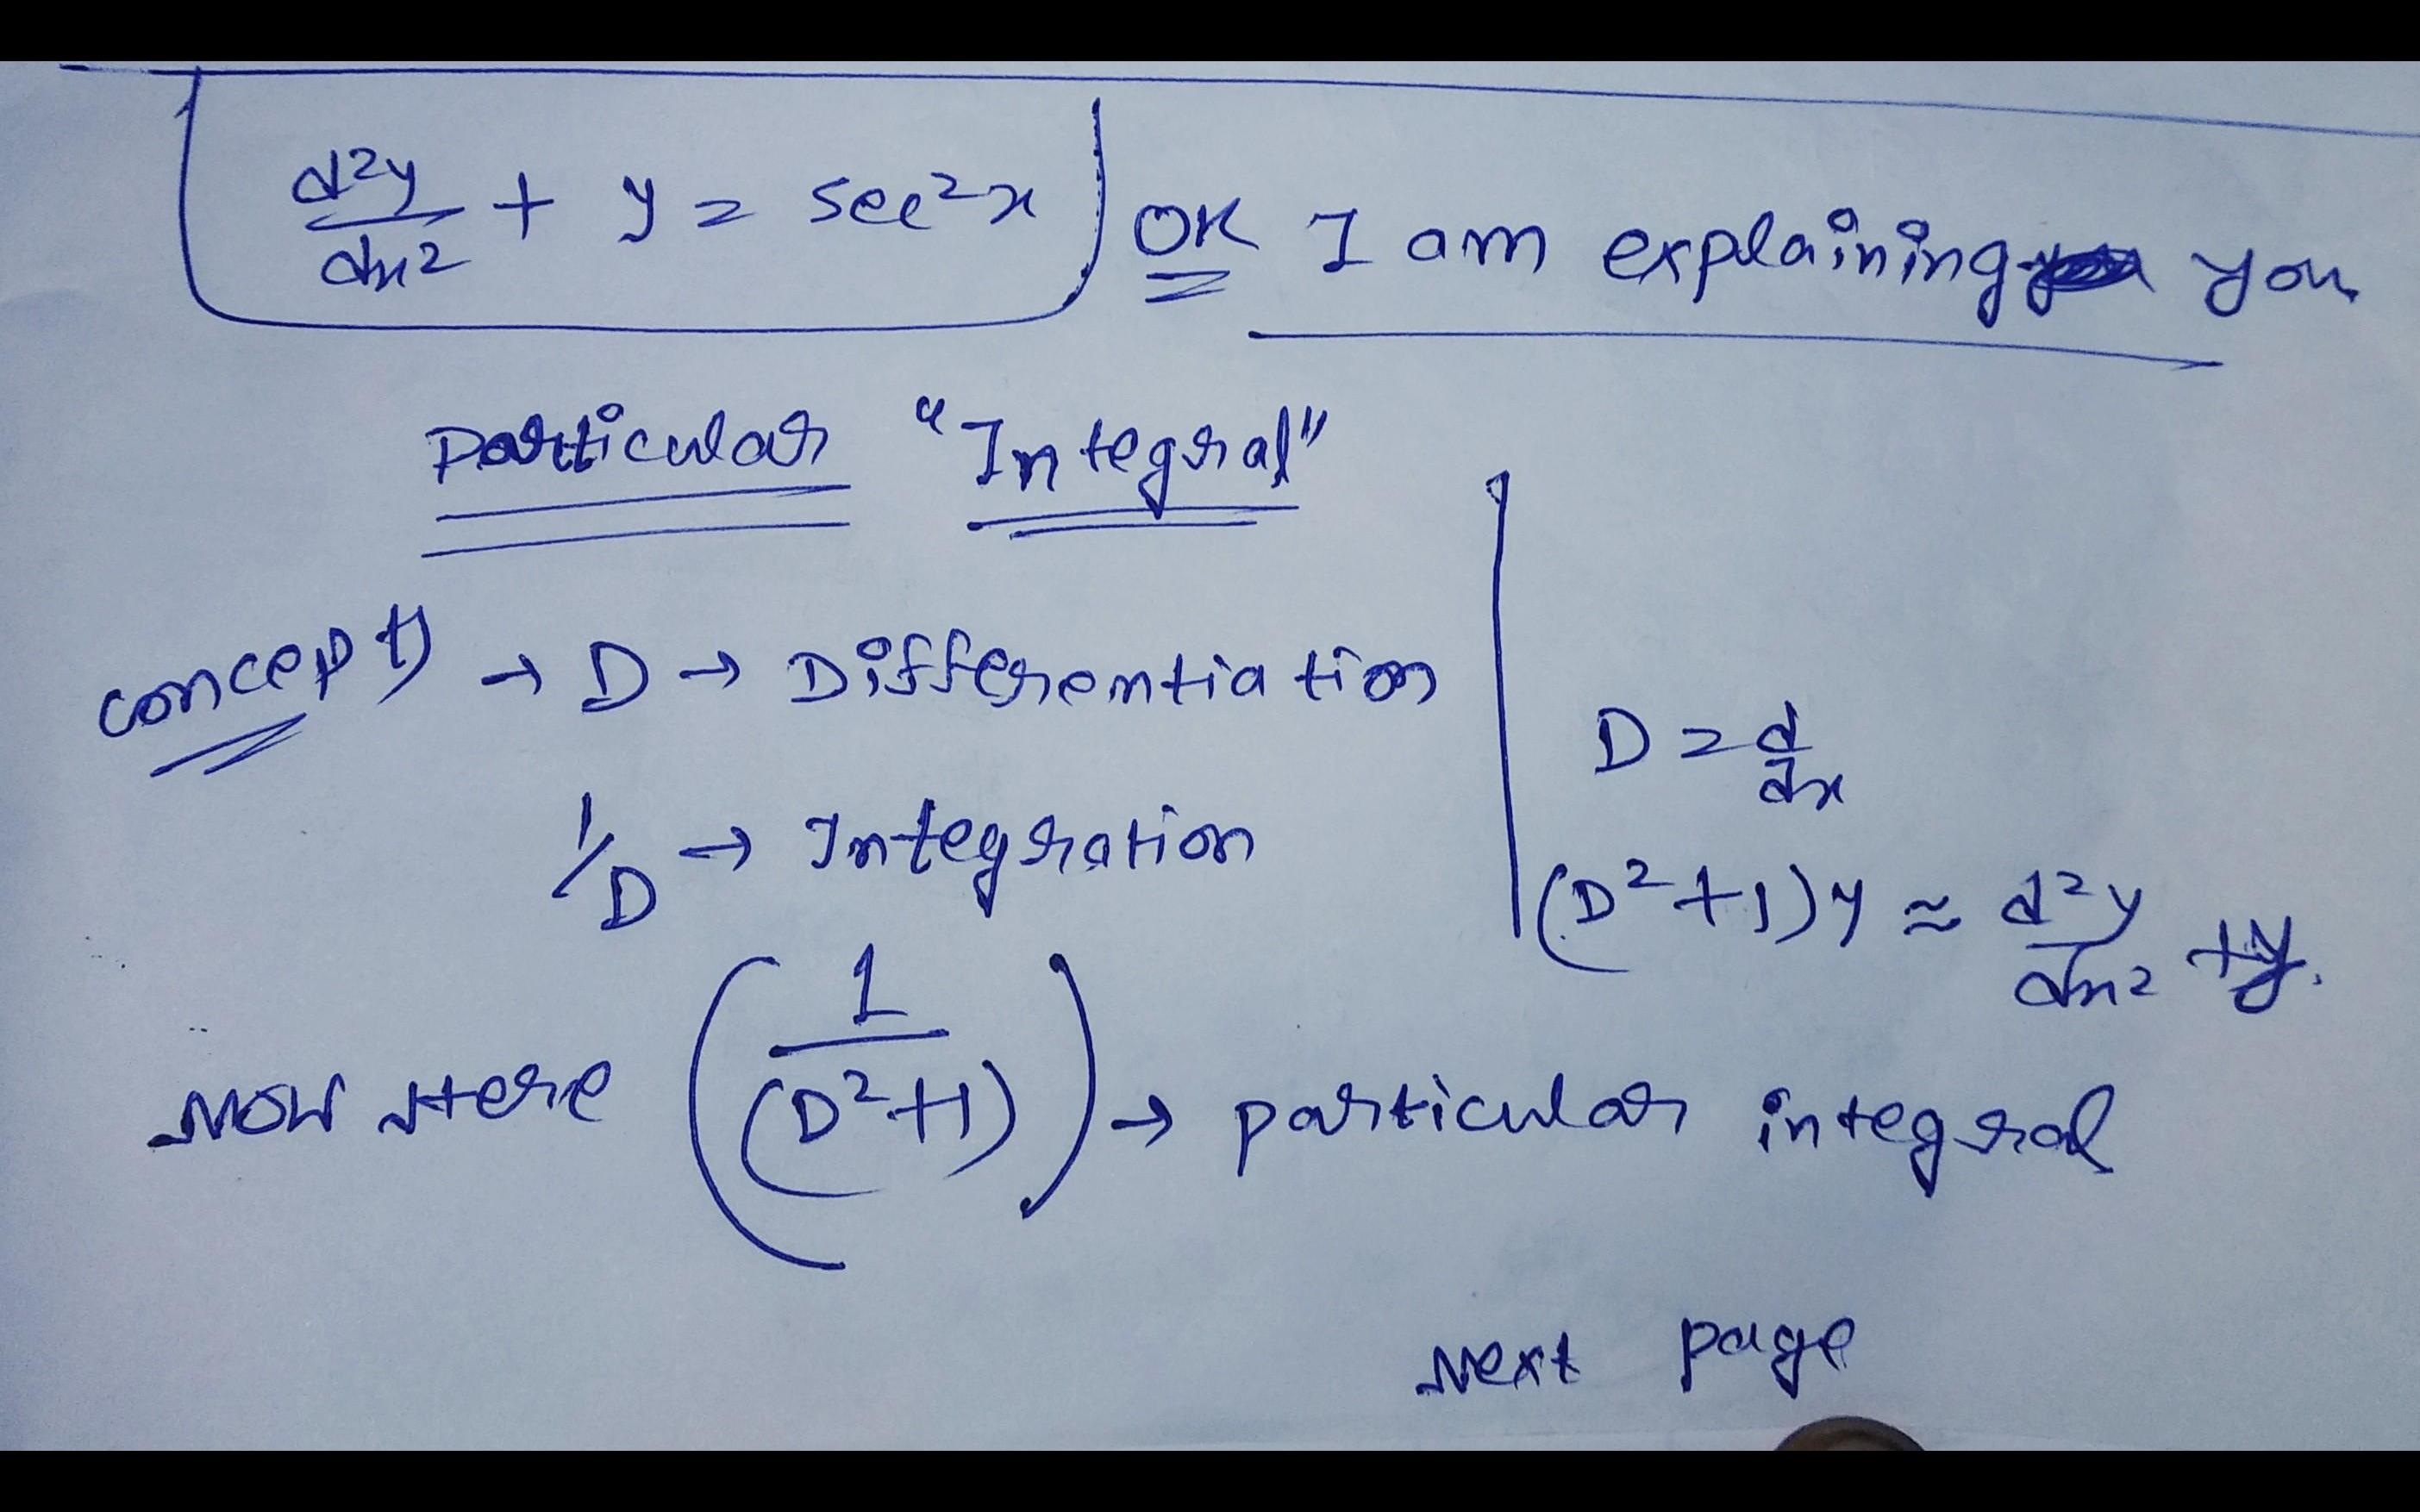 d²y/dx² + y = sec²x OK I am explaining you
Particular "Integral"
concept) → D → Differentiation
1/D → Integration
D = d/dx
(D²+1)y ≈ d²y/dx² + y.
Now Here (1/(D²+1)) → particular integral
Next page